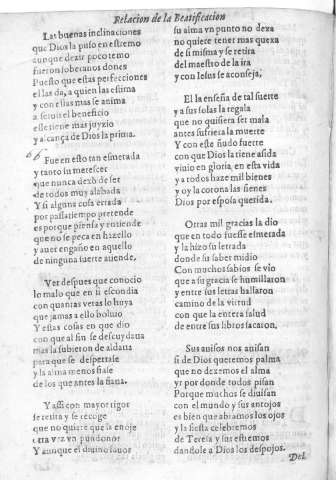 Relacion de la Beatificacion
Las buenas inclinaciones
que Dios la puso en estremo
aunque dezir poco temo
fueron soberanos dones
Puesto que estas perfecciones
el las da, a quien las estima
y con ellas mas se anima
a seruis el beneficio
este tiene mas juyzio
y alcança de Dios la prima.
66
Fue en esto tan esmerada
y tanto su merescer
que nunca dexò de ser
de todos muy alabada
Y si alguna cosa errada
por passatiempo pretende
es porque piensa y entiende
que no se peca en hazello
y auer engaño en aquello
de ninguna suerte atiende.
Yer despues que conocio
lo malo que en si escondia
con quantas veras lo huya
que jamas a ello boluio
Y estas cosas en que dio
con que al fin se descuydaua
mas la subieron de aldaua
para que se despertase
y la alma menos fiase
de los que antes la fiaua.
Y assi con mayor rigor
se retira y se recoge
que no quiere que la enoje
otra vez vn pundonor
Y aunque el diuino amor
su alma vn punto no dexa
no quiere tener mas quexa
de si misma y se retira
del maestro de la ira
y con Iesus se aconseja,
El la enseña de tal suerte
y a sus solas la regala
que no quisiera ser mala
antes sufriera la muerte
Y con este ñudo fuerte
con que Dios la tiene asida
viuio en gloria, en esta vida
y a todos haze mil bienes
y oy la corona las sienes
Dios por esposa querida.
Otras mil gracias la dio
que en todo fuesse esmerada
y la hizo su letrada
donde su saber midio
Con muchos sabios se vio
que a su gracia se humillaron
y entre sus letras hallaron
camino de la virtud
con que la entera salud
de entre sus libros sacaron.
Sus auisos nos auisan
si de Dios queremos palma
que no dexemos el alma
yr por donde todos pisan
Porque muchos se diuisan
con el mundo y sus antojos
es bien que abramos los ojos
y la fiesta celebremos
de Teresa y sus estremos
dandole a Dios los despojos.
Del